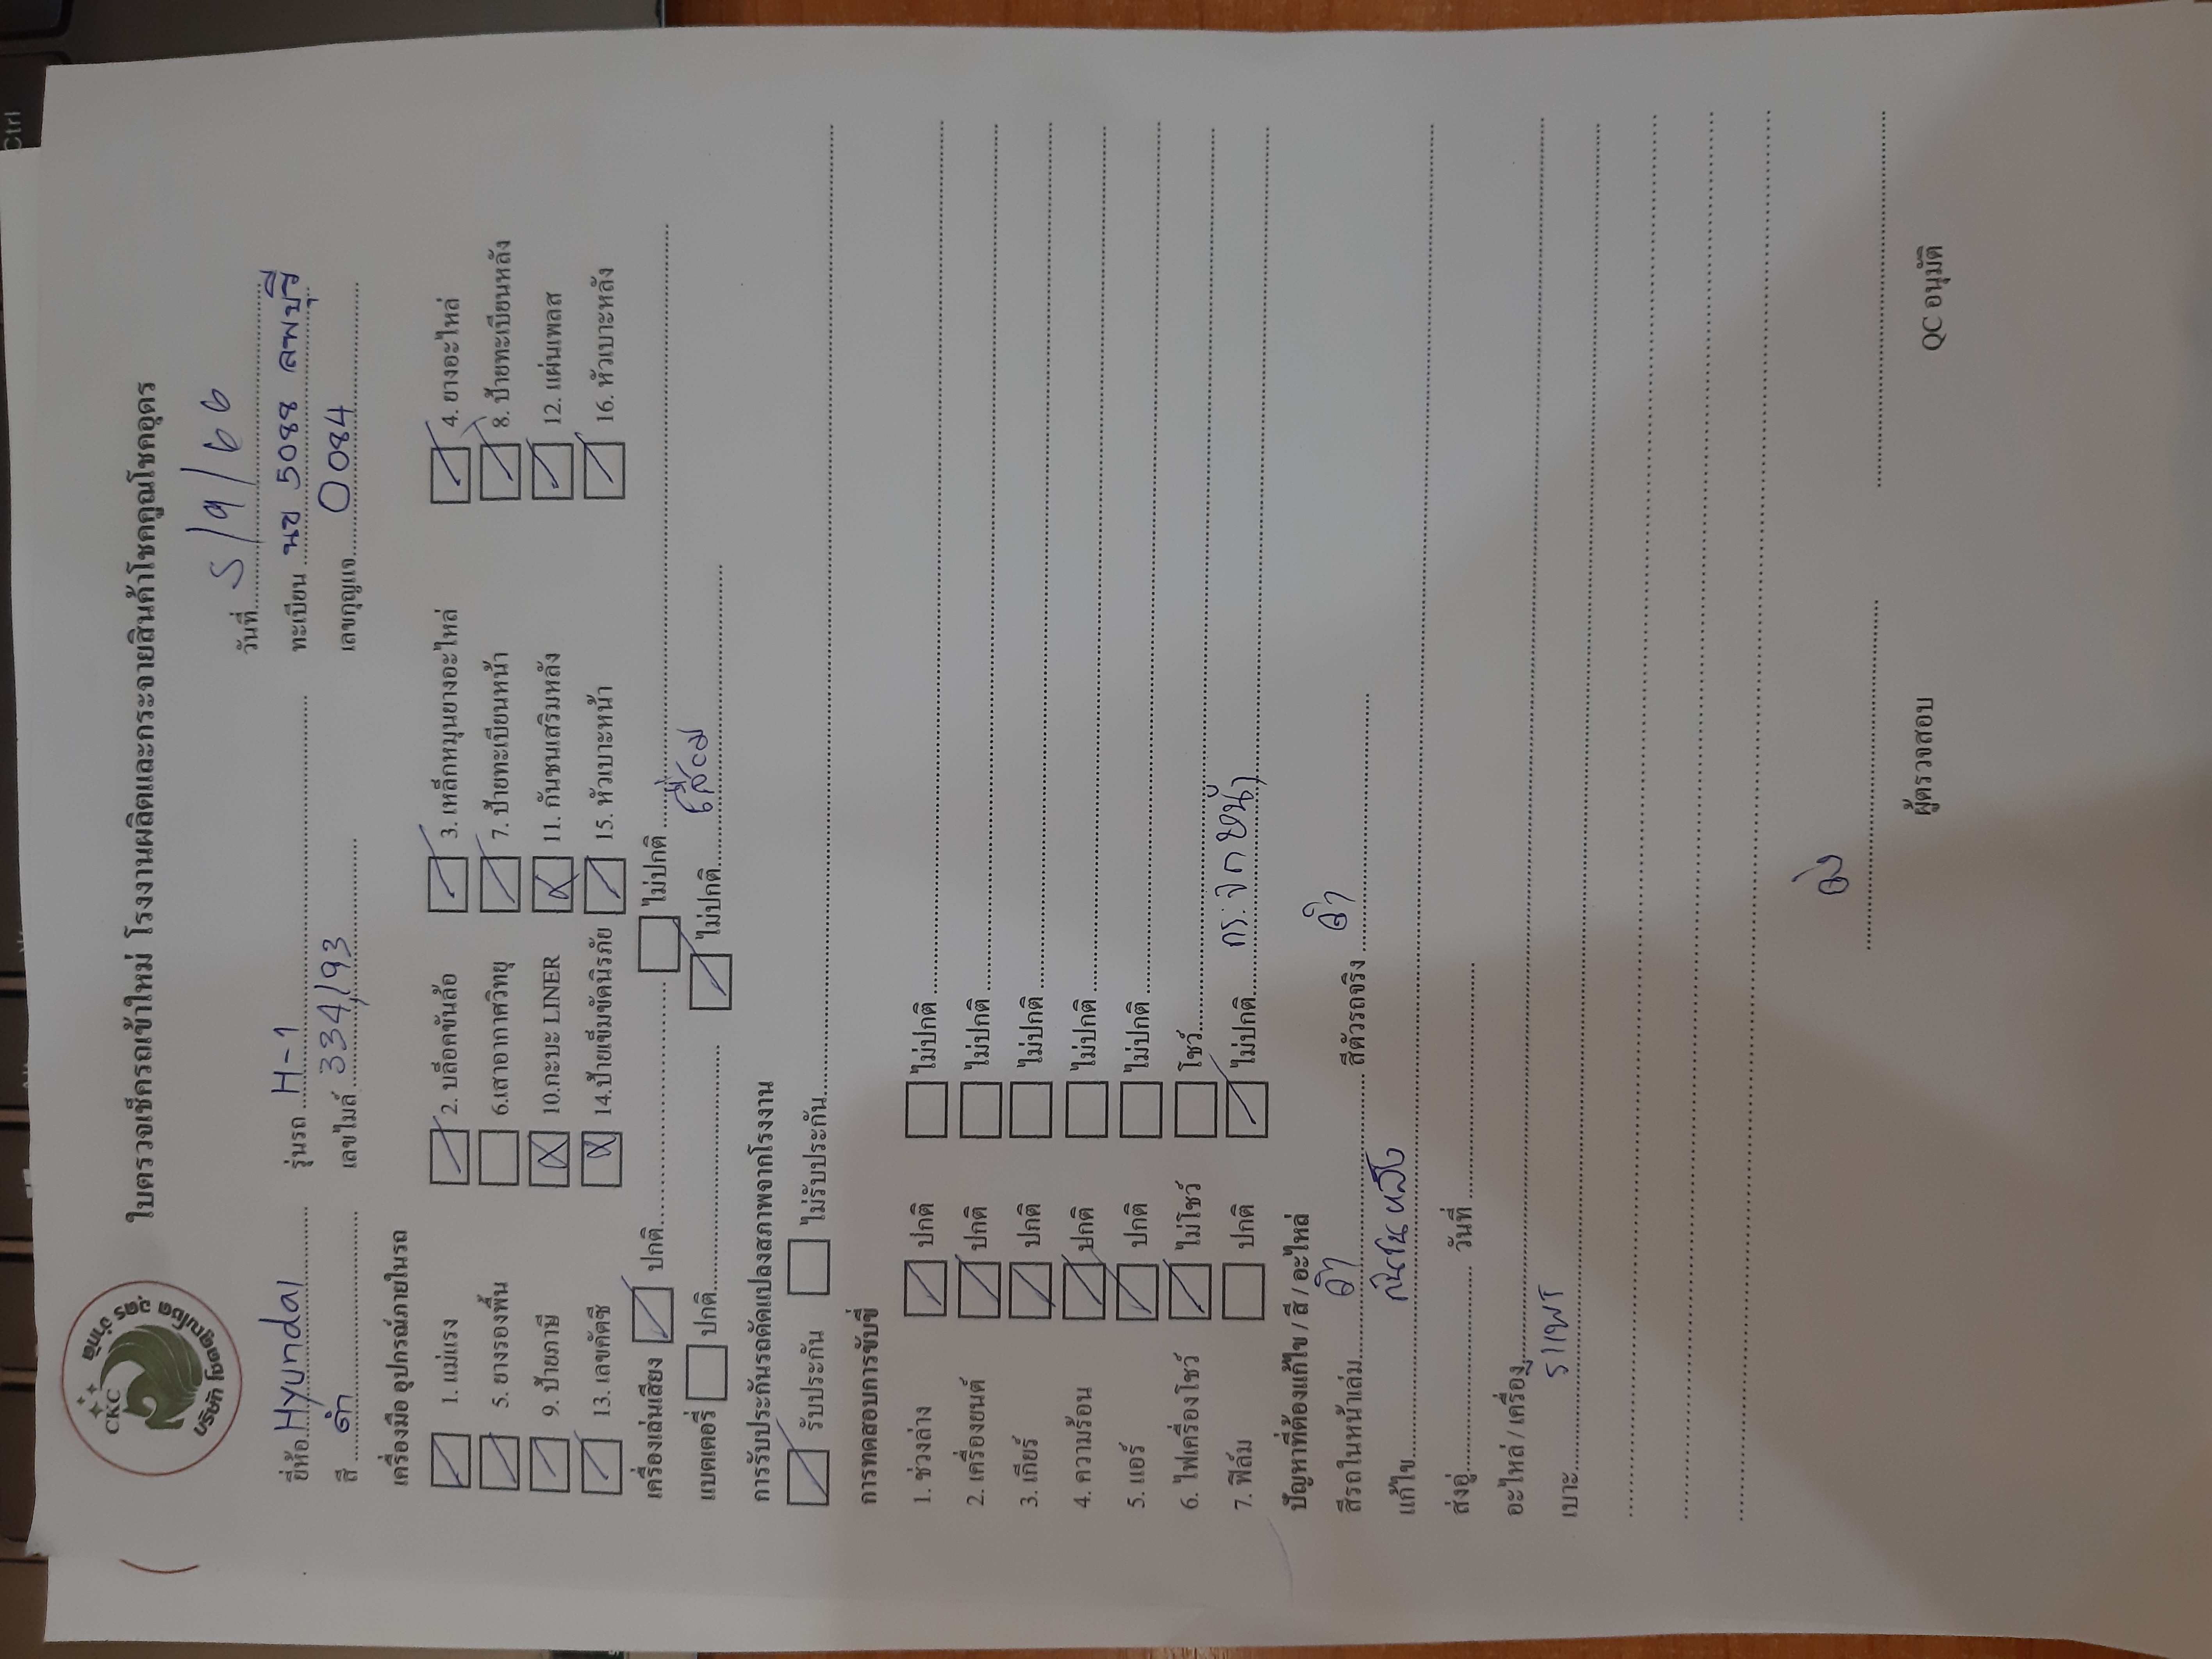 CKC
บริษัท โชคคูณโชค อุดร จำกัด
ใบตรวจเช็ครถเข้าใหม่ โรงงานผลิตและกระจายสินค้าโชคคูณโชคอุดร
วันที่ 5/9/66
ยี่ห้อ Hyundai รุ่นรถ H-1 ทะเบียน นข 5088 ลพบุรี
สี ดำ เลขไมล์ 334,193 เลขกุญแจ 0084
เครื่องมือ อุปกรณ์ภายในรถ
1. แม่แรง 2. บล๊อคขันล้อ 3. เหล็กหมุนยางอะไหล่ 4. ยางอะไหล่
5. ยางรองพื้น 6.เสาอากาศวิทยุ 7. ป้ายทะเบียนหน้า 8. ป้ายทะเบียนหลัง
9. ป้ายภาษี 10.กะบะ LINER 11. กันชนเสริมหลัง 12. แผ่นเพลส
13. เลขคัตซี 14.ป้ายเข็มขัดนิรภัย 15. หัวเบาะหน้า 16. หัวเบาะหลัง
เครื่องเล่นเสียง ปกติ ไม่ปกติ
แบตเตอรี่ ปกติ ไม่ปกติ เสื่อม
การรับประกันรถดัดแปลงสภาพจากโรงงาน
รับประกัน ไม่รับประกัน
การทดสอบการขับขี่
1. ช่วงล่าง ปกติ ไม่ปกติ
2. เครื่องยนต์ ปกติ ไม่ปกติ
3. เกียร์ ปกติ ไม่ปกติ
4. ความร้อน ปกติ ไม่ปกติ
5. แอร์ ปกติ ไม่ปกติ
6. ไฟเครื่องโชว์ ไม่โชว์ โชว์
7. ฟิล์ม ปกติ ไม่ปกติ กระจกหน้า
ปัญหาที่ต้องแก้ไข / สี / อะไหล่
สีรถในหน้าเล่ม ดำ สีตัวรถจริง ดำ
แก้ไข
ส่งอู่ วันที่
อะไหล่ / เครื่อง
เบาะ
ผู้ตรวจสอบ QC อนุมัติ